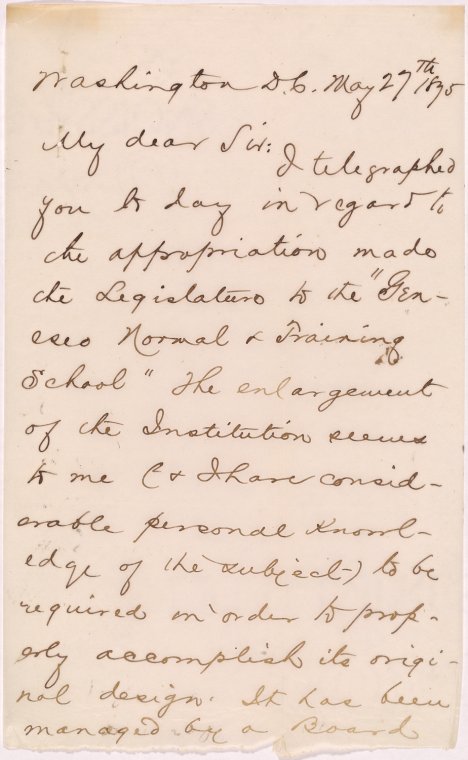 Washington D.C. May 27th 1875
My dear Sir:
I telegraphed
you to day in regard to
the appropriation made
the Legislature to the "Gen-
eseo Normal & Training
School" The enlargement
of the Institution seems
to me (& I have consid-
erable personal Knowl-
edge of the subject) to be
required in order to prop-
erly accomplish its origi-
nal design. It has been
managed by a Board